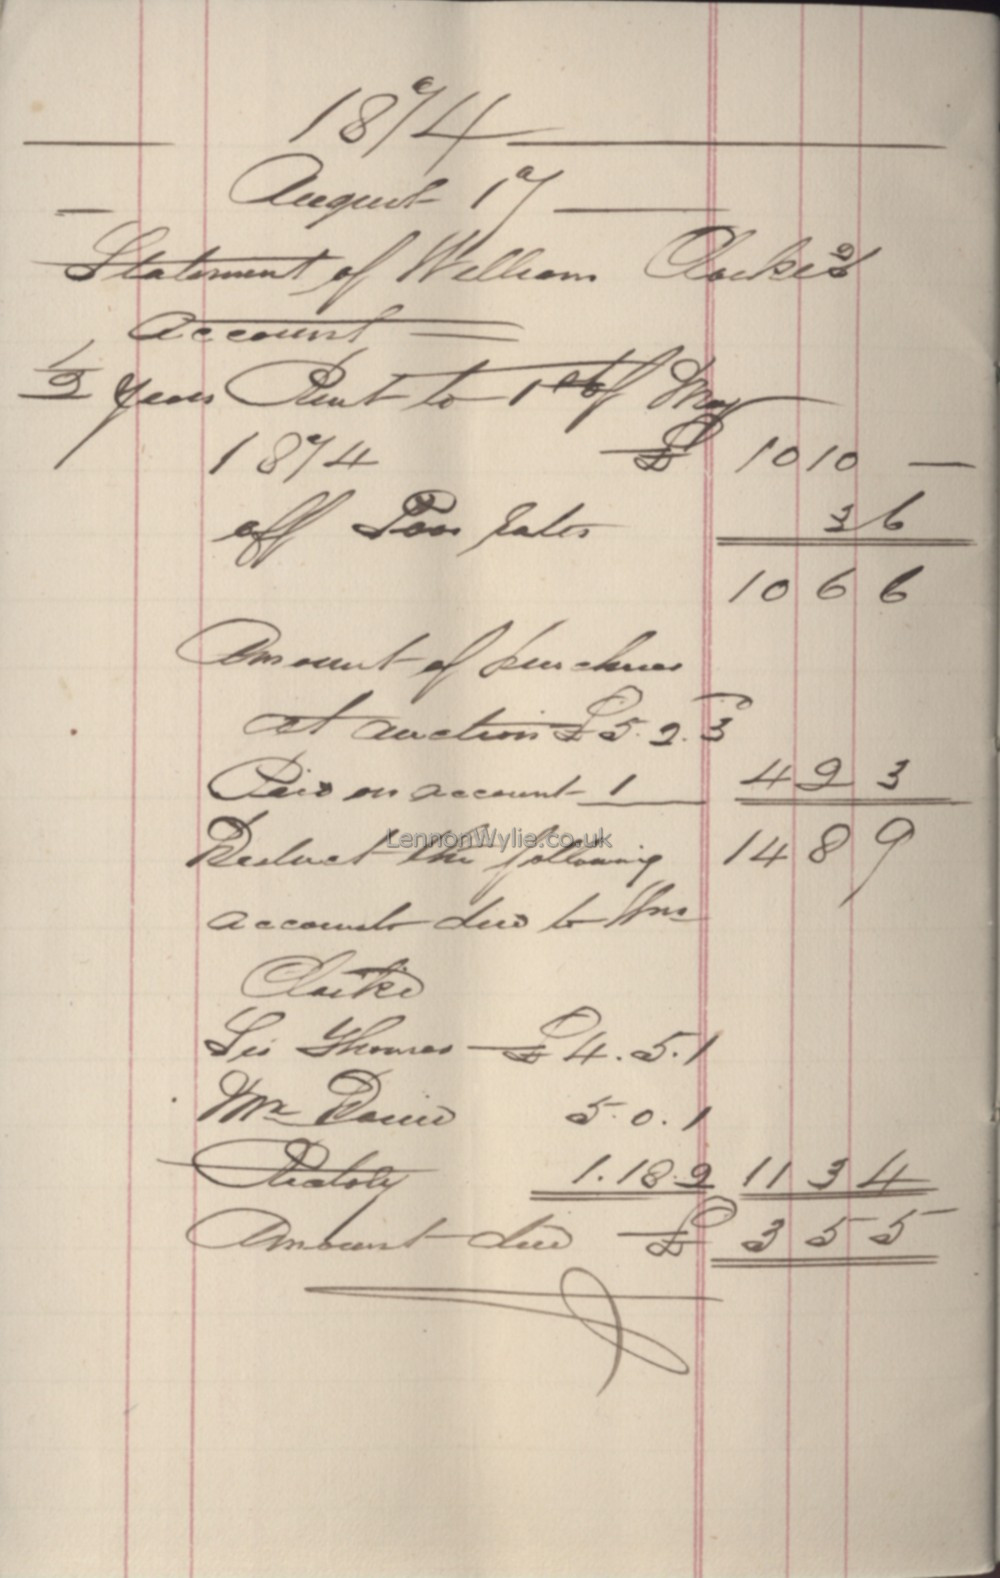 1874
August 17
Statement of William Clarke's
account
1/2 years Rent to 1st of May
1874 £ 10 10 —
off Poor Rates 3 6
10 6 6
Amount of purchases
at auction £5. 2. 3
Paid on account 1 4 2 3
LennonWylie.co.uk
Deduct the following 14 8 9
accounts due to Wm
Clarke
Sir Thomas £4. 5. 1
Mr David 5. 0. 1
1. 18. 2 11 3 4
Amount due £ 3 5 5